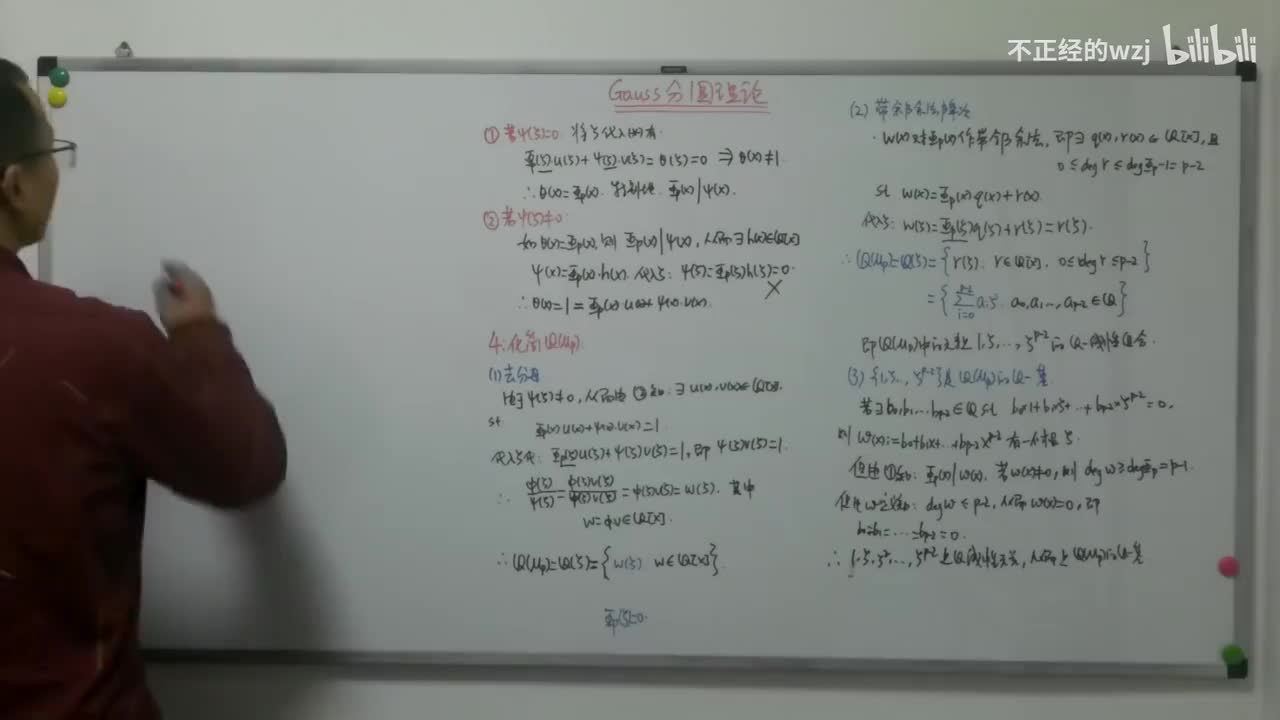 不正经的wzj bilibili
Gauss分圆理论
① 若Ψ(ζ)=0. 将ζ代入则有.
Φp(ζ)u(ζ)+Ψ(ζ)·v(ζ)=θ(ζ)=0 ⇒ θ(x)≠1.
∴θ(x)=Φp(x). Φp(x)|Ψ(x).
② 若Ψ(ζ)≠0.
如θ(x)=Φp(x), 则 Φp(x)|Ψ(x), 从而∃h(x)∈Q[x]
Ψ(x)=Φp(x)·h(x). 代入ζ: Ψ(ζ)=Φp(ζ)h(ζ)=0.
×
∴θ(x)=1=Φp(x)·u(x)+Ψ(x)·v(x).
4. 化简Q(μp).
(1) 去分母
由于Ψ(ζ)≠0, 从而由②知: ∃u(x),v(x)∈Q[x].
st Φp(x)u(x)+Ψ(x)·v(x)=1
代入ζ: Φp(ζ)u(ζ)+Ψ(ζ)v(ζ)=1, 即 Ψ(ζ)v(ζ)=1.
∴ φ(ζ)/Ψ(ζ)=φ(ζ)v(ζ)/Ψ(ζ)v(ζ)=φ(ζ)v(ζ)=w(ζ). 其中
w=φv∈Q[x].
∴Q(μp)=Q(ζ)={w(ζ). w∈Q[x]}.
Φp(ζ)=0.
(2) 带余除法降次
·w(x)对Φp(x)作带余除法, 即∃ q(x),r(x)∈Q[x], 且
0≤deg r≤degΦp-1=p-2
st w(x)=Φp(x)q(x)+r(x).
代入ζ: w(ζ)=Φp(ζ)q(ζ)+r(ζ)=r(ζ).
∴Q(μp)=Q(ζ)={r(ζ). r∈Q[x]. 0≤deg r≤p-2}
={∑_{i=0}^{p-2} aᵢζⁱ. a₀,a₁,…,a_{p-2}∈Q}
即Q(μp)中的元是1,ζ,…,ζ^{p-2}的Q-线性组合.
(3) {1,ζ,…,ζ^{p-2}}是Q(μp)的Q-基
若∃b₀,b₁,…,b_{p-2}∈Q st b₀·1+b₁·ζ+…+b_{p-2}·ζ^{p-2}=0,
则 w(x):=b₀+b₁x+…+b_{p-2}x^{p-2}有一个根ζ.
但由①知: Φp(x)|w(x). 若w(x)≠0, 则 deg w≥degΦp=p-1.
但由w定义知: deg w≤p-2, 从而w(x)=0, 即
b₀=b₁=…=b_{p-2}=0.
∴1,ζ,ζ²,…,ζ^{p-2}是Q线性无关, 从而是Q(μp)的Q-基